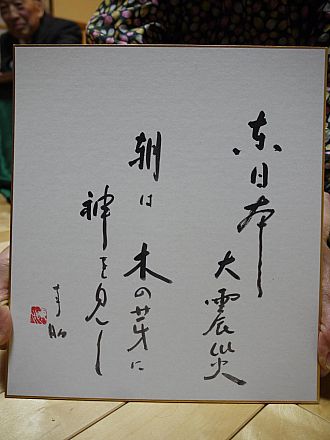 東日本大震災
朝は木の芽に
神を見し